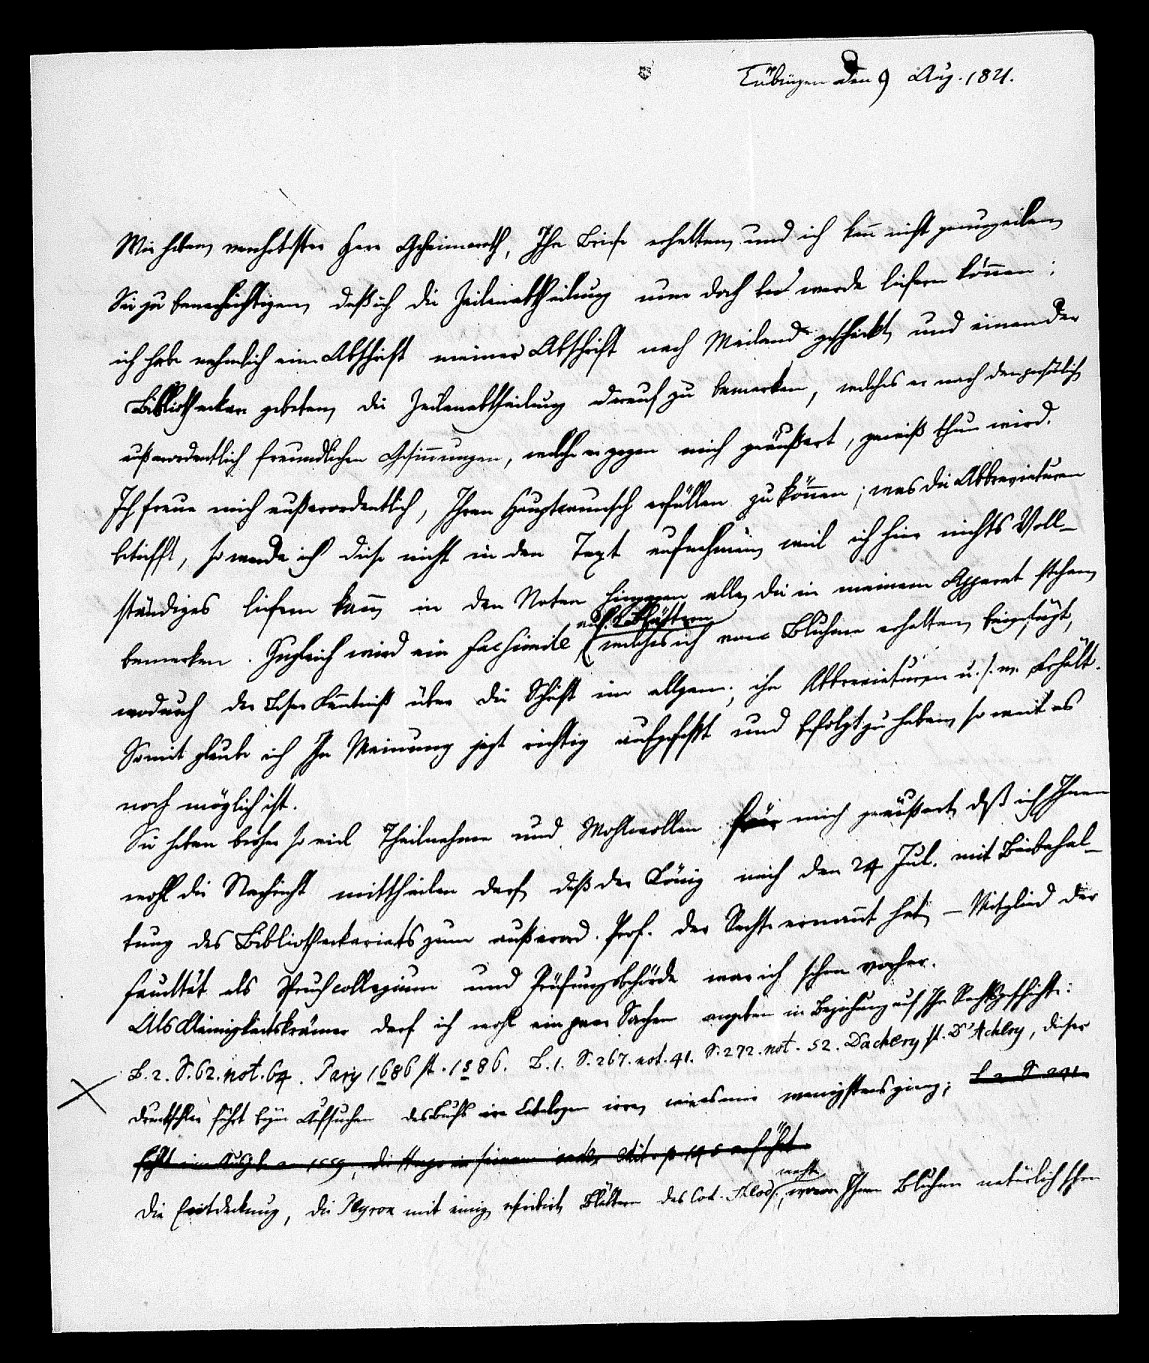 Tübingen den 9 Aug. 1821.
Wir haben, verehrtester Herr Geheimerath, Ihre Briefe erhalten, und ich kann nicht genug eilen,
Sie zu benachrichtigen, daß ich die Zeilenabtheilung nun doch werde liefern können;
ich habe nehmlich eine Abschrift meiner Abschrift nach Mailand geschickt, und einen der
Bibliothekare gebeten, die Zeilenabtheilung darauf zu bemerken, welches er nach den
außerordentlich freundlichen Gesinnungen, welche er gegen mich geäußert, gewiß thun wird.
Ich freue mich außerordentlich, Ihren Hauptwunsch erfüllen zu können; was die Abbreviaturen
betrifft, so werde ich diese nicht in den Text aufnehmen, weil ich hier nichts Voll-
ständiges liefern kann, in den Noten hingegen alle, die in meinem Apparat stehen,
bemerken. Zugleich wird ein Facsimile welches ich von Bluhme erhalten, beigefügt,
wodurch der Leser Kenntniß über die Schrift im allgem., ihre Abbreviaturen u.s.w. erhält.
Somit glaube ich Ihre Meinung jezt richtig aufgefaßt und befolgt zu haben, so weit es
noch möglich ist.
Sie haben bisher so viel Theilnahme und Wohlwollen für mich geäußert, daß ich Ihnen
wohl die Nachricht mittheilen darf, daß der König mich den 24 Jul. mit Beibehal-
tung des Bibliothekariats zum außerord. Prof. der Rechte ernannt hat, – Mitglied der
Facultät als Spruchcollegium und Prüfungsbehörde war ich schon vorher.
Als Kleinigkeitskrämer darf ich wohl ein paar Sachen angeben in Beziehung auf Ihre Rechtsgeschichte:
B. 2. S. 62. not. 64. Pary 1686 st. 1586. B. 1. S. 267. not. 41. S. 272. not. 52. Dachery st. D'Achery, dieser
Druckfehler führt beym Aufsuchen des Buchs im Catalogen irre, wie es mir wenigstens ging;
Die Entdeckung, die Peyron mit einigen Blättern des Cod. Theod. macht, wovon Ihnen Bluhme natürlich schon